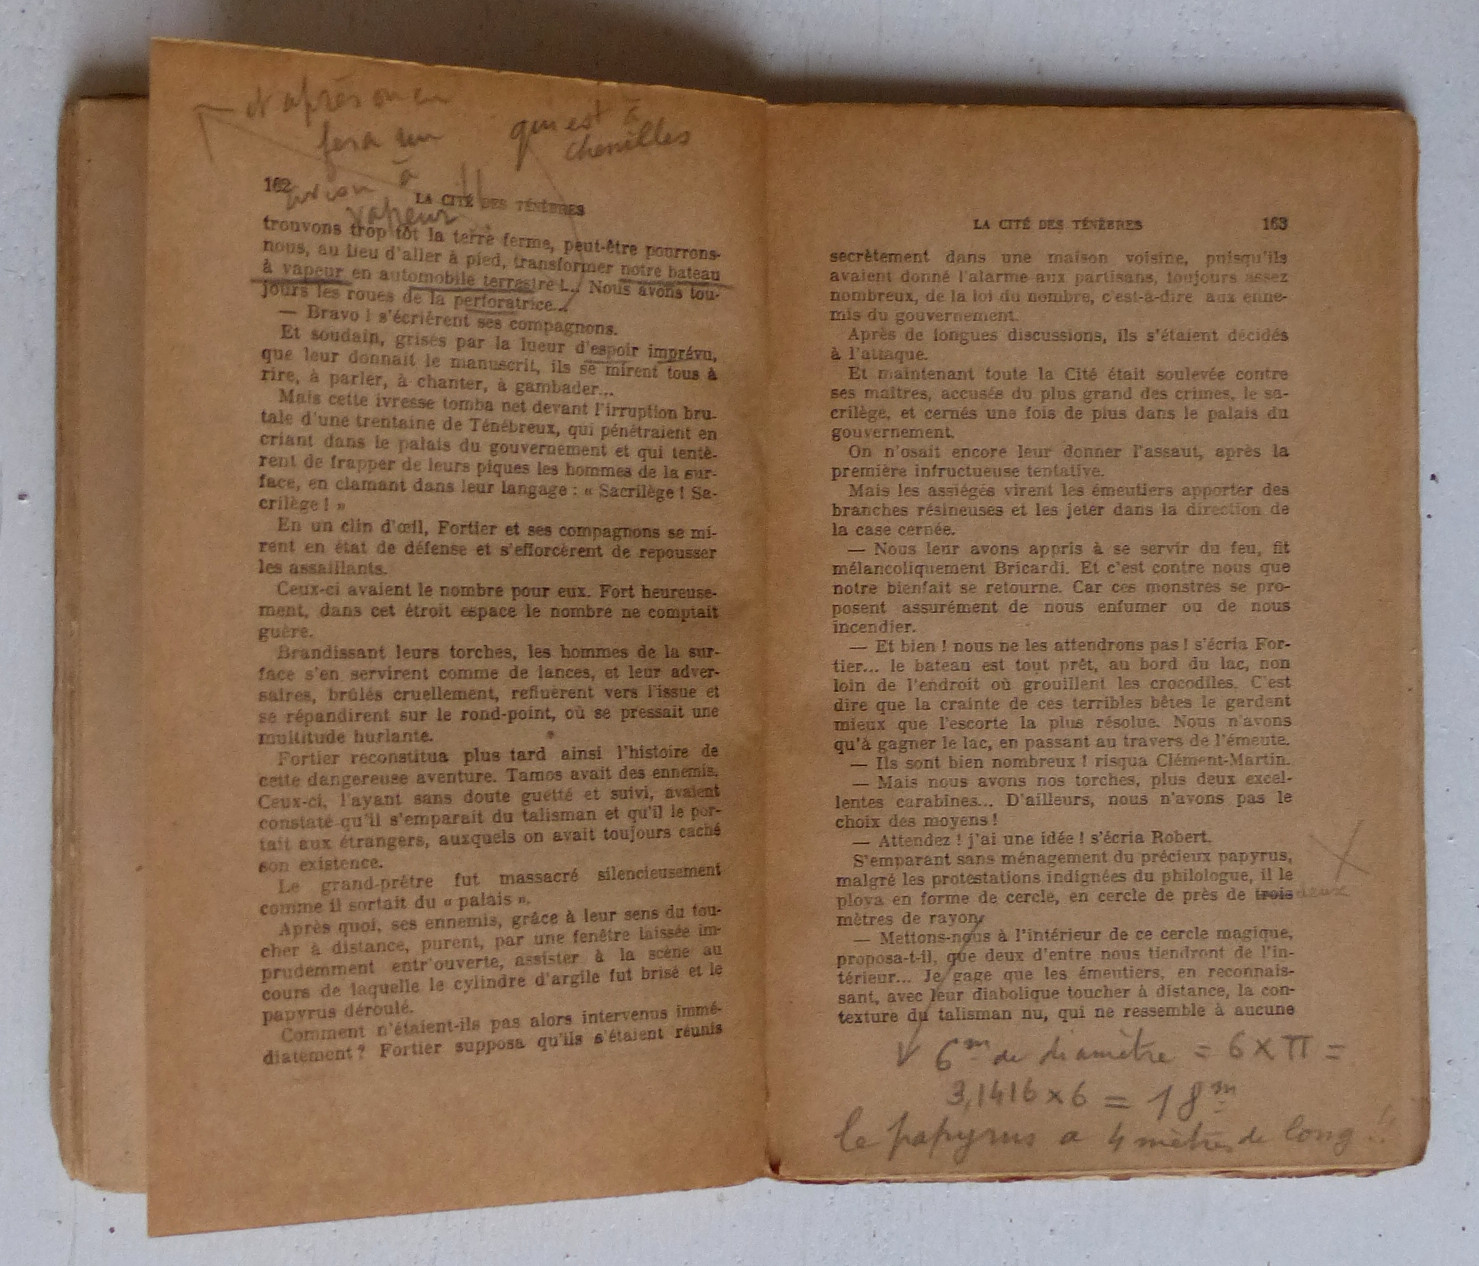 et après on en
fera un
avion à
vapeur !!
qui est à
chenilles
162
LA CITÉ DES TÉNÈBRES
trouvons trop tôt la terre ferme, peut-être pourrons-
nous, au lieu d'aller à pied, transformer notre bateau
à vapeur en automobile terrestre !... Nous avons tou-
jours les roues de la perforatrice...
— Bravo ! s'écrièrent ses compagnons.
Et soudain, grisés par la lueur d'espoir imprévu,
que leur donnait le manuscrit, ils se mirent tous à
rire, à parler, à chanter, à gambader...
Mais cette ivresse tomba net devant l'irruption bru-
tale d'une trentaine de Ténébreux, qui pénétraient en
criant dans le palais du gouvernement et qui tentè-
rent de frapper de leurs piques les hommes de la sur-
face, en clamant dans leur langage : « Sacrilège ! Sa-
crilège ! »
En un clin d'œil, Fortier et ses compagnons se mi-
rent en état de défense et s'efforcèrent de repousser
les assaillants.
Ceux-ci avaient le nombre pour eux. Fort heureuse-
ment, dans cet étroit espace le nombre ne comptait
guère.
Brandissant leurs torches, les hommes de la sur-
face s'en servirent comme de lances, et leur adver-
saires, brûlés cruellement, refluèrent vers l'issue et
se répandirent sur le rond-point, où se pressait une
multitude hurlante.
Fortier reconstitua plus tard ainsi l'histoire de
cette dangereuse aventure. Tamos avait des ennemis.
Ceux-ci, l'ayant sans doute guetté et suivi, avaient
constaté qu'il s'emparait du talisman et qu'il le por-
tait aux étrangers, auxquels on avait toujours caché
son existence.
Le grand-prêtre fut massacré silencieusement
comme il sortait du « palais ».
Après quoi, ses ennemis, grâce à leur sens du tou-
cher à distance, purent, par une fenêtre laissée im-
prudemment entr'ouverte, assister à la scène au
cours de laquelle le cylindre d'argile fut brisé et le
papyrus déroulé.
Comment n'étaient-ils pas alors intervenus immé-
diatement ? Fortier supposa qu'ils s'étaient réunis
LA CITÉ DES TÉNÈBRES
163
secrètement dans une maison voisine, puisqu'ils
avaient donné l'alarme aux partisans, toujours assez
nombreux, de la loi du nombre, c'est-à-dire aux enne-
mis du gouvernement.
Après de longues discussions, ils s'étaient décidés
à l'attaque.
Et maintenant toute la Cité était soulevée contre
ses maîtres, accusés du plus grand des crimes, le sa-
crilège, et cernés une fois de plus dans le palais du
gouvernement.
On n'osait encore leur donner l'assaut, après la
première infructueuse tentative.
Mais les assiégés virent les émeutiers apporter des
branches résineuses et les jeter dans la direction de
la case cernée.
— Nous leur avons appris à se servir du feu, fit
mélancoliquement Bricardi. Et c'est contre nous que
notre bienfait se retourne. Car ces monstres se pro-
posent assurément de nous enfumer ou de nous
incendier.
— Et bien ! nous ne les attendrons pas ! s'écria For-
tier... le bateau est tout prêt, au bord du lac, non
loin de l'endroit où grouillent les crocodiles. C'est
dire que la crainte de ces terribles bêtes le gardent
mieux que l'escorte la plus résolue. Nous n'avons
qu'à gagner le lac, en passant au travers de l'émeute.
— Ils sont bien nombreux ! risqua Clément-Martin.
— Mais nous avons nos torches, plus deux excel-
lentes carabines... D'ailleurs, nous n'avons pas le
choix des moyens !
— Attendez ! j'ai une idée ! s'écria Robert.
S'emparant sans ménagement du précieux papyrus,
malgré les protestations indignées du philologue, il le
ploya en forme de cercle, en cercle de près de trois deux
mètres de rayon.
— Mettons-nous à l'intérieur de ce cercle magique,
proposa-t-il, que deux d'entre nous tiendront de l'in-
térieur... Je gage que les émeutiers, en reconnais-
sant, avec leur diabolique toucher à distance, la con-
texture du talisman nu, qui ne ressemble à aucune
6m de diamètre = 6 × π =
3,1416 × 6 = 18m
le papyrus a 4 mètres de long !!